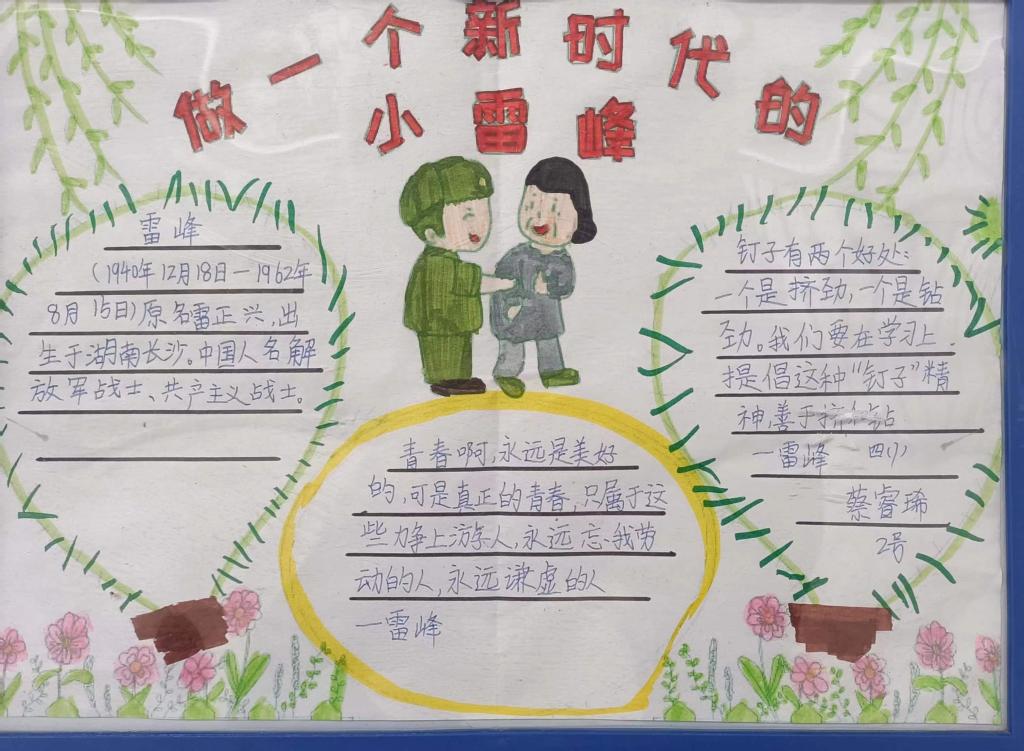 做一个新时代的
小雷峰
雷峰
（1940年12月18日—1962年
8月15日）原名雷正兴，出
生于湖南长沙。中国人名解
放军战士、共产主义战士。
青春啊，永远是美好
的，可是真正的青春，只属于这
些力争上游人，永远忘我劳
动的人，永远谦虚的人
—雷峰
钉子有两个好处：
一个是挤劲，一个是钻
劲。我们要在学习上，
提倡这种“钉子”精
神，善于挤和钻
—雷峰 四（1）
蔡睿琋
2号